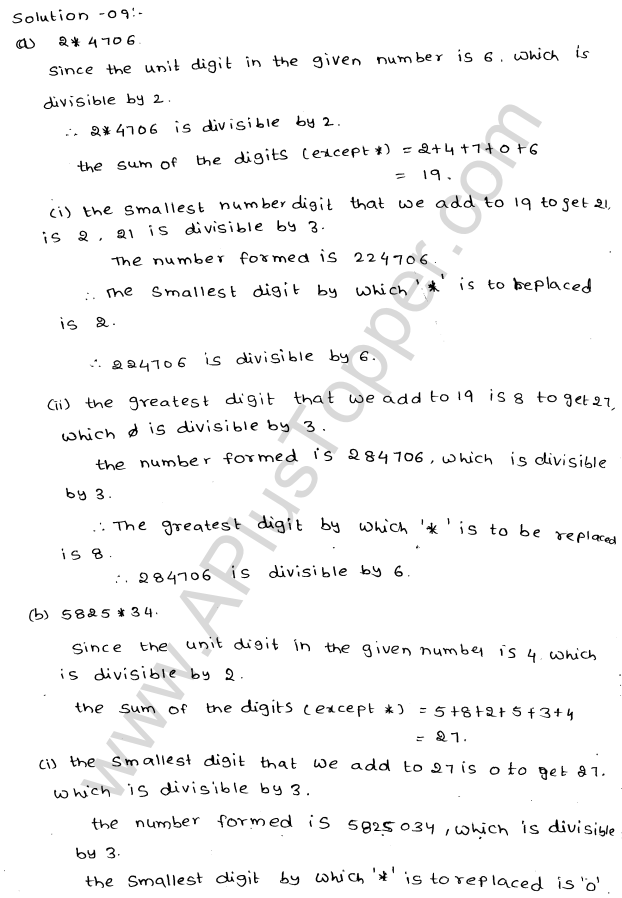 Solution -09:-
(a) 2*4706.
Since the unit digit in the given number is 6. which is
divisible by 2.
∴ 2*4706 is divisible by 2.
the sum of the digits (except *) = 2+4+7+0+6
= 19.
(i) the smallest number digit that we add to 19 to get 21,
is 2, 21 is divisible by 3.
The number formed is 224706.
∴ The smallest digit by which '*' is to replaced
is 2.
∴ 224706 is divisible by 6.
(ii) the greatest digit that we add to 19 is 8 to get 27,
which is divisible by 3.
the number formed is 284706, which is divisible
by 3.
∴ The greatest digit by which '*' is to be replaced
is 8.
∴ 284706 is divisible by 6.
(b) 5825*34.
Since the unit digit in the given number is 4 which
is divisible by 2.
the sum of the digits (except *) = 5+8+2+5+3+4
= 27.
(i) the smallest digit that we add to 27 is 0 to get 27.
which is divisible by 3.
the number formed is 5825034, which is divisible
by 3.
the smallest digit by which '*' is to replaced is '0'.
www.APlusTopper.com